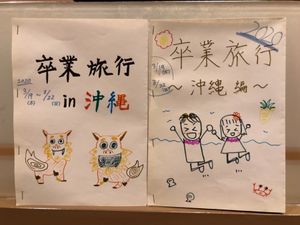 卒業旅行
2020
3/19(木)~3/22(日)
in 沖縄
2020
卒業旅行
3/19(木)
3/22(日)
~沖縄編~